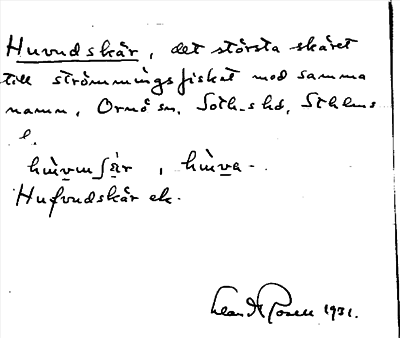 Huvudskär, det största skäret
till strömmingsfisket med samma
namn, Ornö sn, Soth-s hd, Sthlms
l.
hùvu∫är, hùva-
Hufvudskär ek.
Rosell 1931.